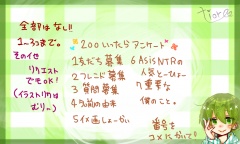 全部はなし!!
1〜3つまで。
その代せ
リクエスト
でもOK!
(イラストリクは
むりー。)
200いったらアンケート
1友だち募集
2フレンド募集
3質問募集
4名前の由来
5イメ画しょーかい
6AsisNTRの
人気とーひょー
7重要な
個のこと。
番号を
コメにかいて!!